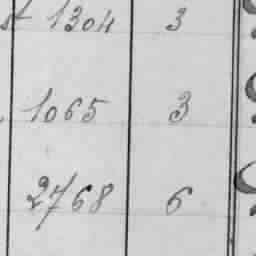 st 1304 3
1065 3
2768 6